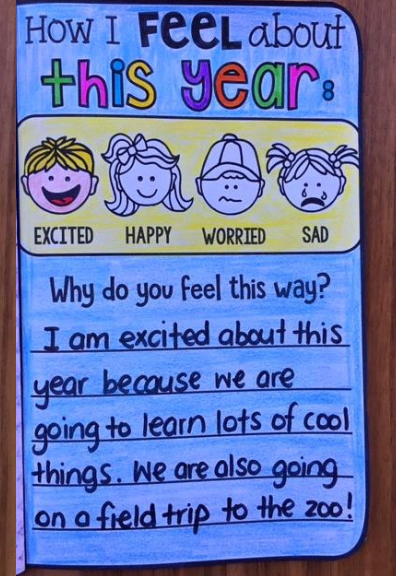 How I FEEL about
this year:
EXCITED HAPPY WORRIED SAD
Why do you feel this way?
I am excited about this
year because we are
going to learn lots of cool
things. We are also going
on a field trip to the zoo!